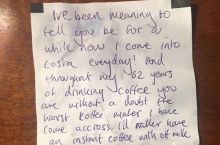 I've been meaning to
tell you be for a
while now I come into
Costa everyday! And
throughout my 62 years
of drinking coffee you
are without a doubt the
worst Koffee maker I have
come accross, I'd rather have
an instant coffee with off milk